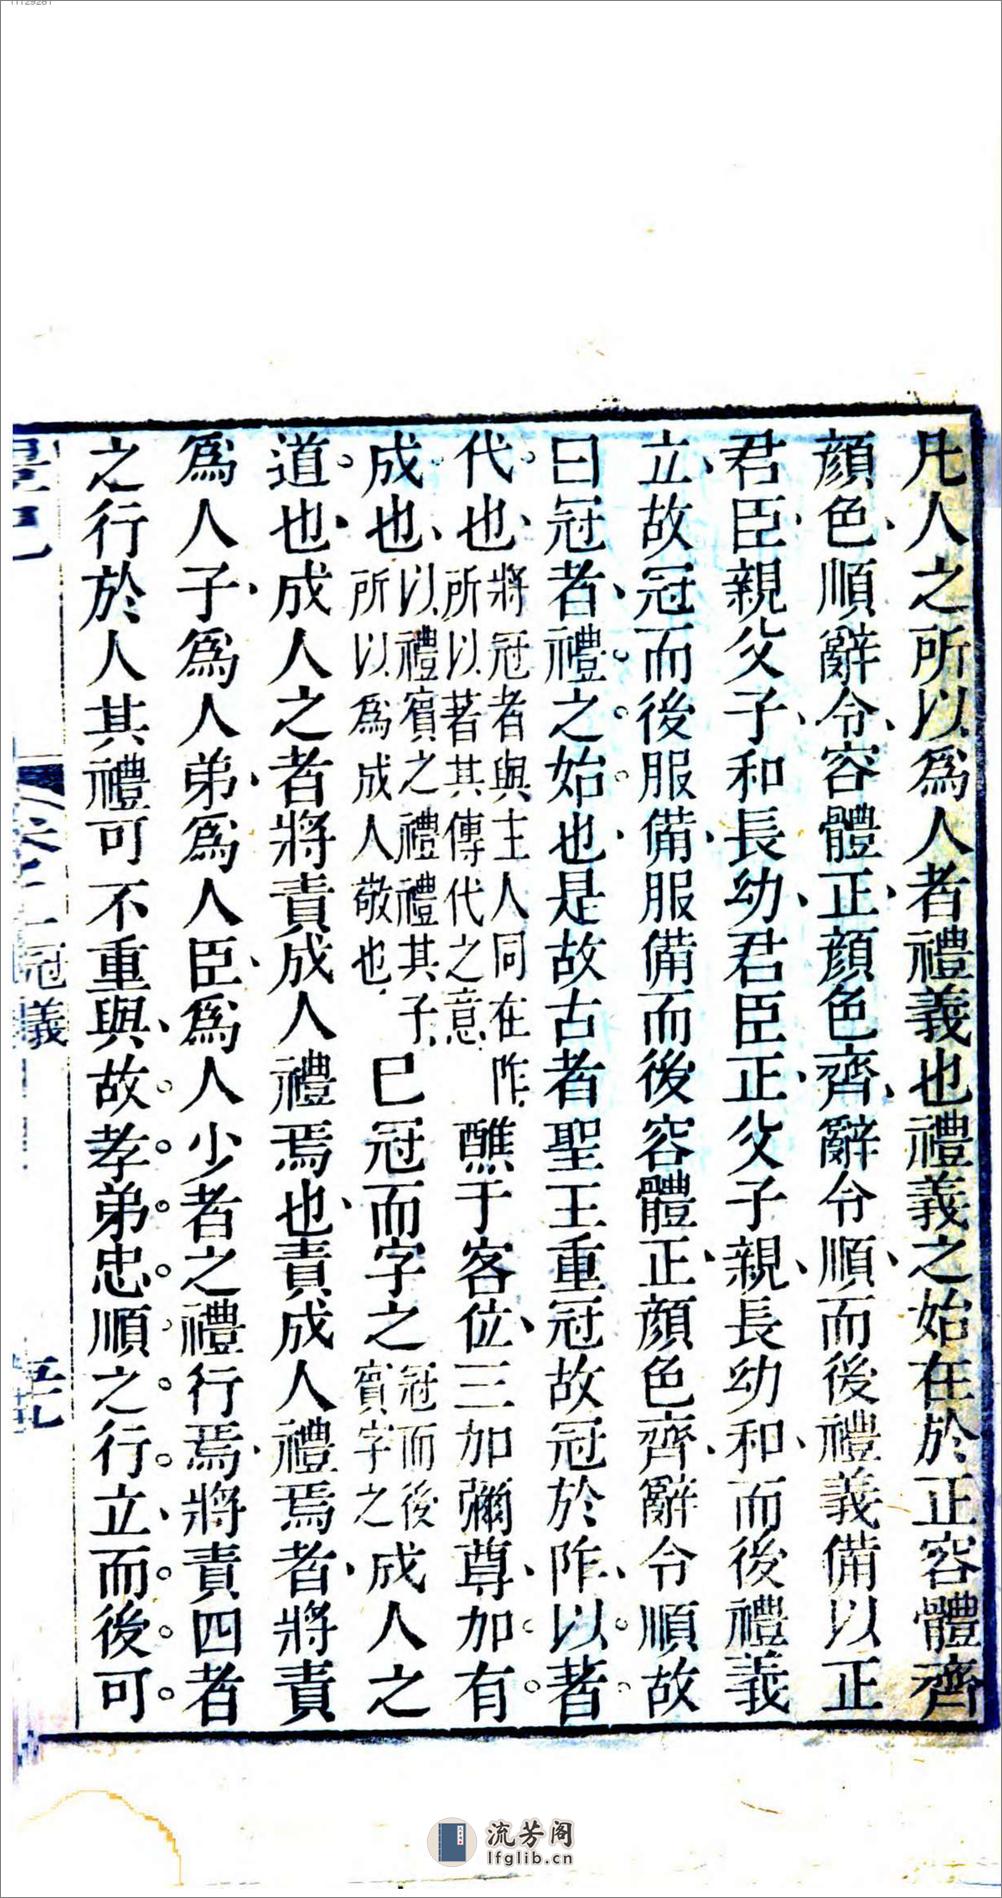 凡人之所以爲人者禮義也禮義之始在於正容體齊
顔色順辭令容體正顔色齊辭令順而後禮義備以正
君臣親父子和長幼君臣正父子親長幼和而後禮義
立故冠而後服備服備而後容體正顔色齊辭令順故
曰冠者禮之始也是故古者聖王重冠故冠於阼以著
代也
將冠者與主人同在阼
所以著其傳代之意
醮于客位三加彌尊加有
成也
以禮賓之禮禮其子
所以爲成人敬也
已冠而字之
冠而後
賓字之
成人之
道也成人之者將責成人禮焉也責成人禮焉者將責
爲人子爲人弟爲人臣爲人少者之禮行焉將責四者
之行於人其禮可不重與故孝弟忠順之行立而後可
冠義
流芳阁
lfglib.cn